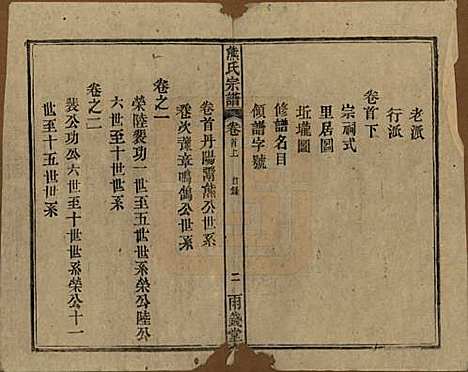 老派
行派
卷首下
宗祠式
里居圖
坵壠圖
修譜名目
領譜字號
熊氏宗譜
卷首上
目錄
二
兩錢堂
卷首丹陽鬻熊公世系
卷次豫章鳴鵠公世系
卷之一
榮陸裴功一世至五世世系榮公陸公
六世至十世世世系
卷之二
裴公功公六世至十世世系榮公十一
世至十五世世系